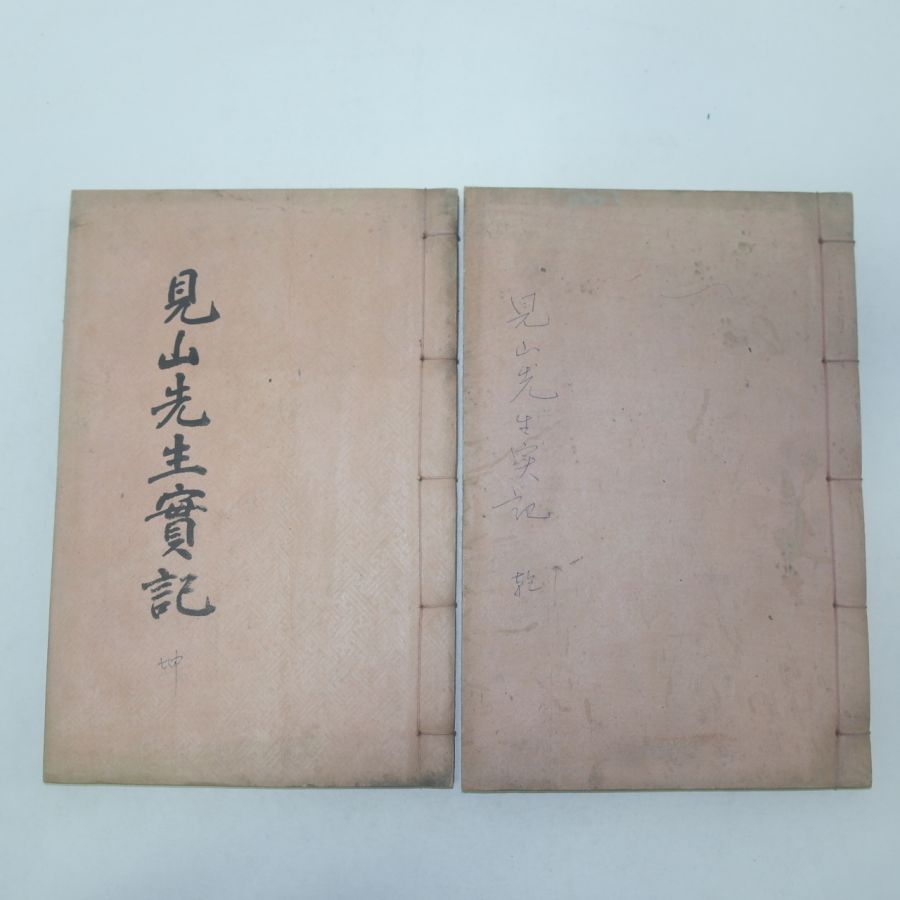 見山先生實記
坤
見山先生実記
乾